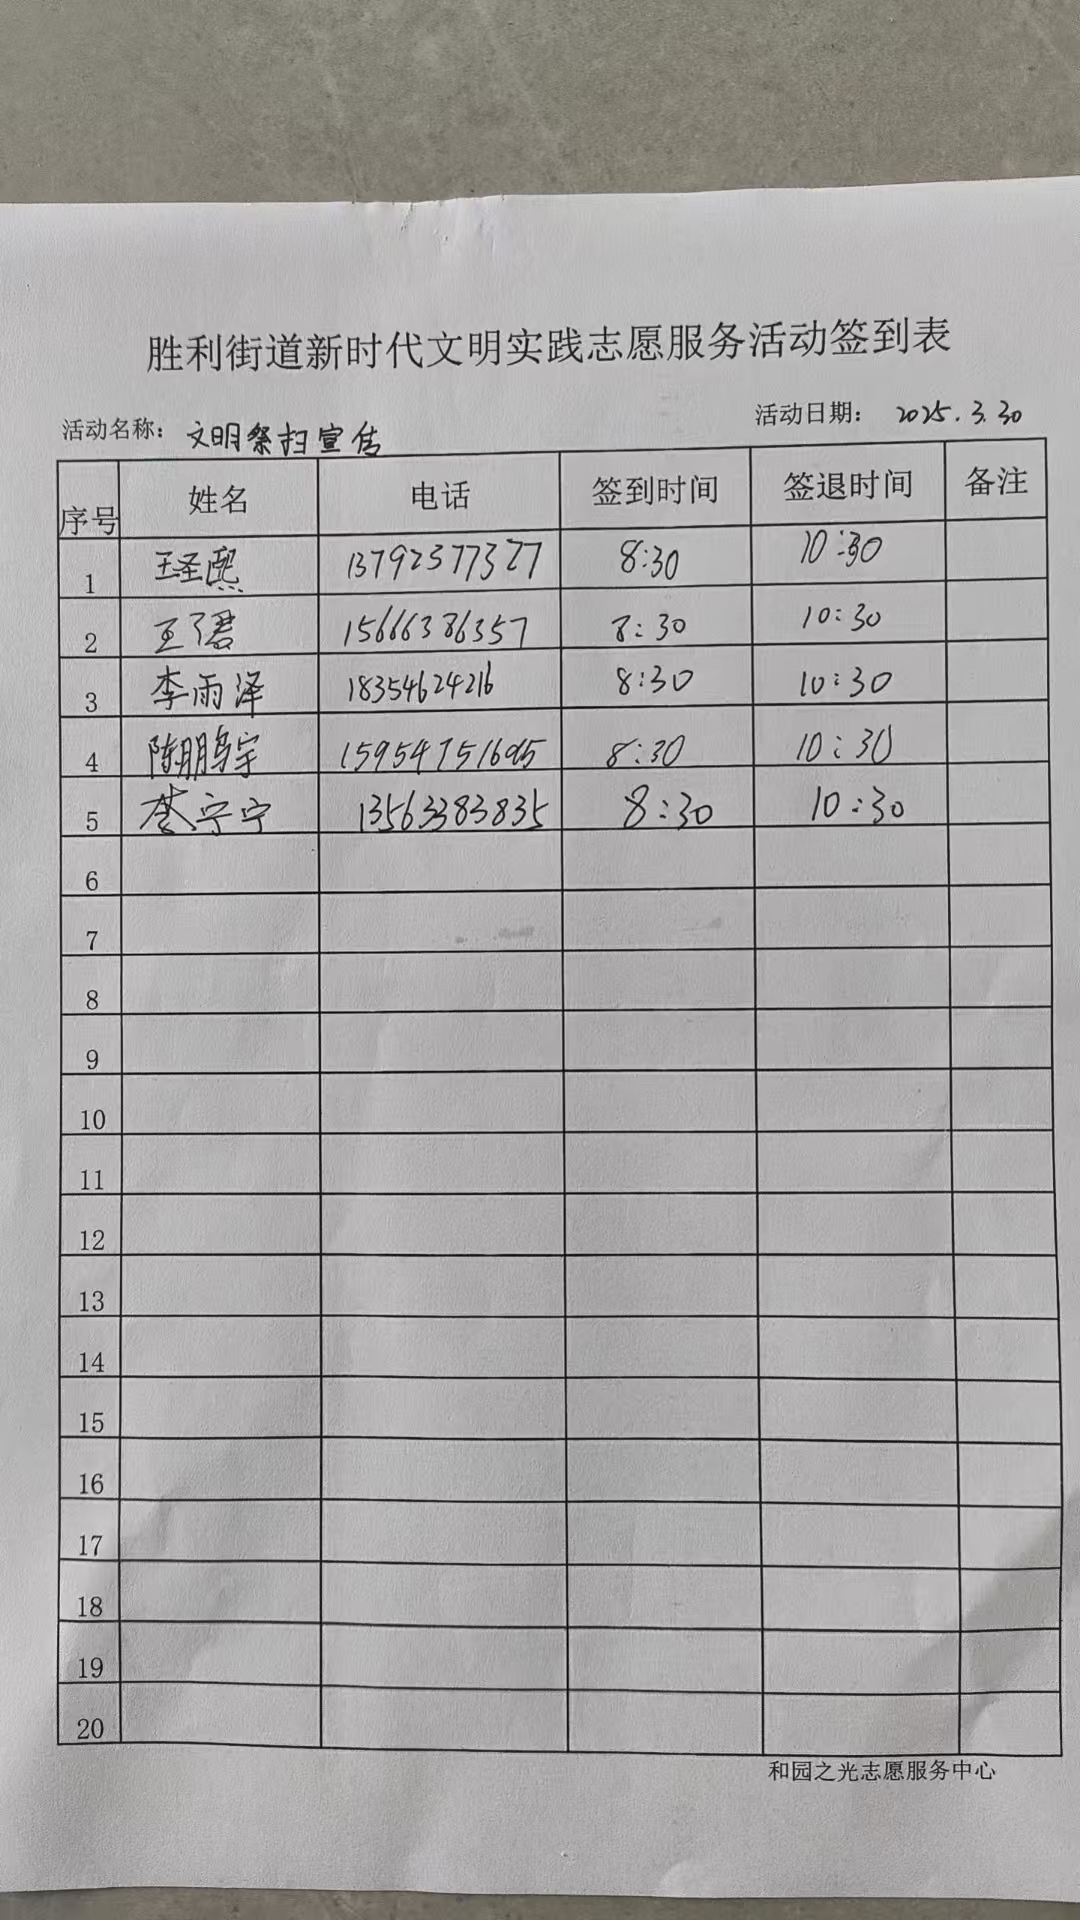 胜利街道新时代文明实践志愿服务活动签到表
活动名称: 文明祭扫宣传 活动日期: 2025.3.30
序号 姓名 电话 签到时间 签退时间 备注
1 王圣熙 13792377327 8:30 10:30
2 王子君 15666386357 8:30 10:30
3 李雨泽 18354624216 8:30 10:30
4 陈鹏宇 15954751695 8:30 10:30
5 宁宁 13563383835 8:30 10:30
6
7
8
9
10
11
12
13
14
15
16
17
18
19
20
和园之光志愿服务中心